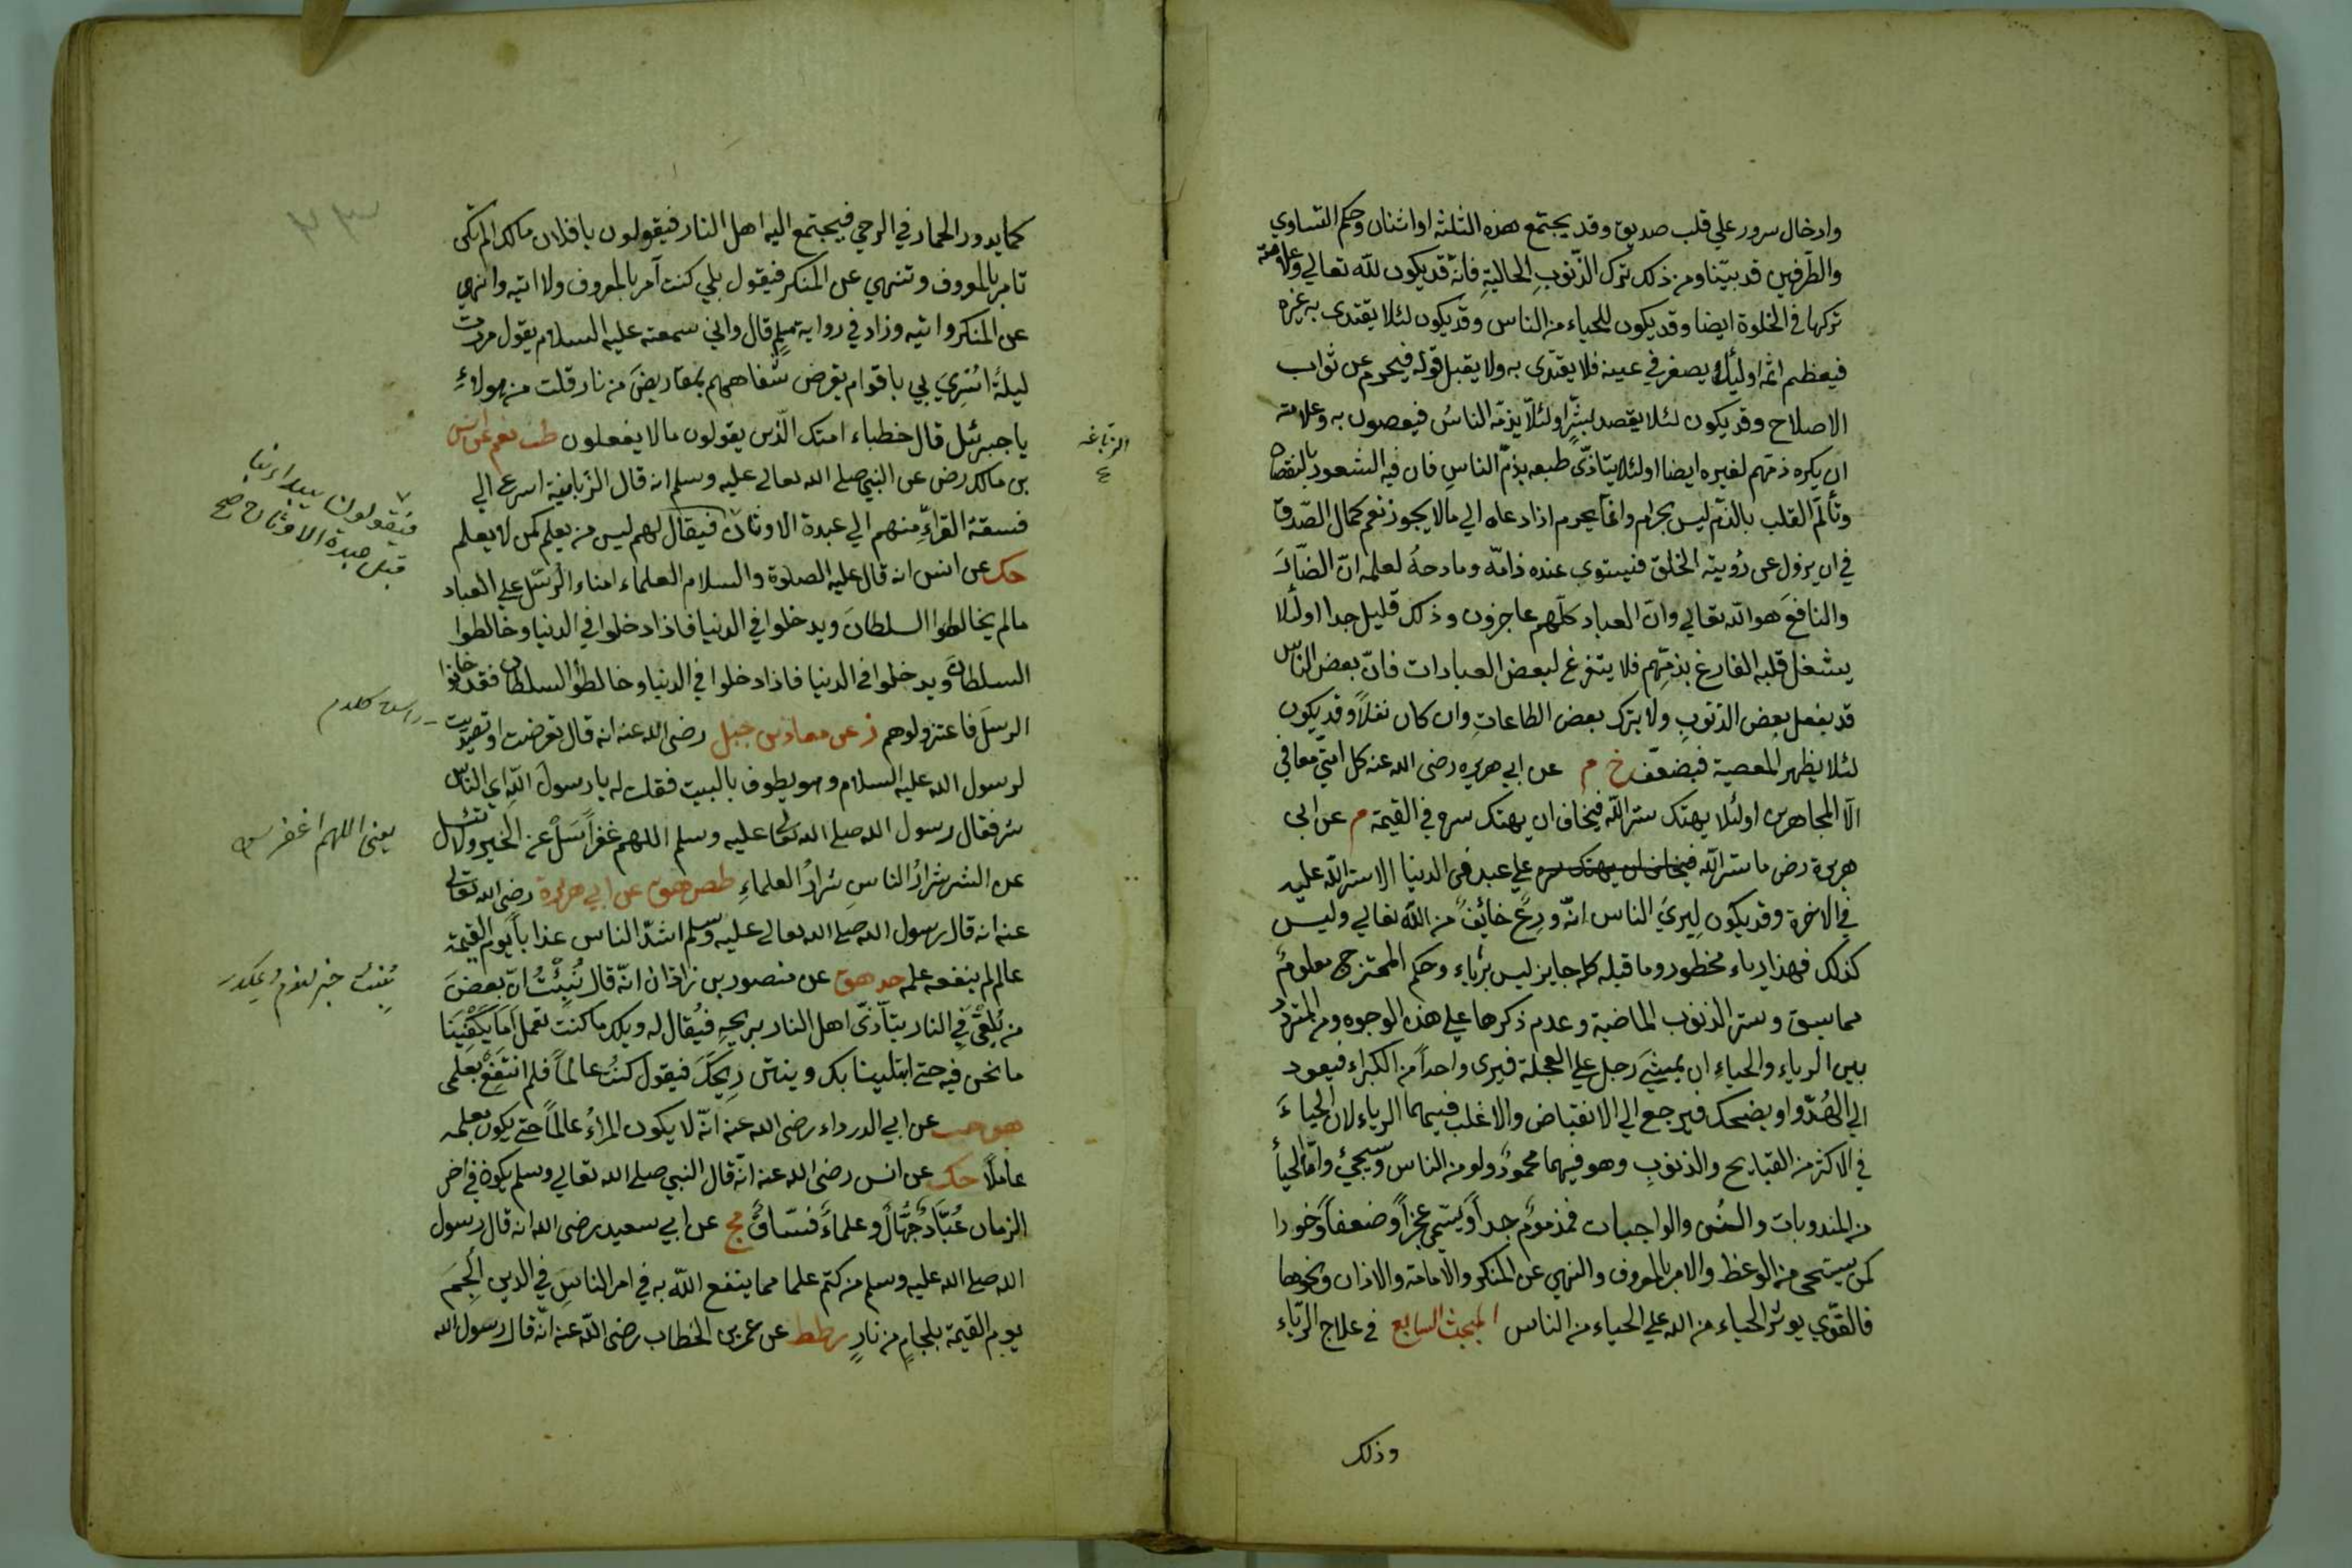 وادخال سرور علي قلب صديق وقد يجتمع هذه الثلثه او اثنان وحكم التساوي
والطّرفين قد بيّنا ومن ذلك ترك الذّنوبِ الحاليةِ فانّه قد يكون للّه تعالي وعلامته
تركها في الخلوة ايضا وقد يكون للحياء من الناس وقد يكون لئلا يقتدى به غيره
فيعظم اثمه اولئلا يصغر في عينه فلا يقتدى به ولا يقبل قوله فيحرم عن ثواب
الاصلاح وقد يكون لئلا يقصد بشرّ او لئلّا يذمّه الناسُ فيعصون به وعلامته
ان يكره ذمّهم لغيره ايضا اولئلا يتاذّى طبعه بذمّ الناسِ فان فيه الشعور بالنقصان
وتألّم القلب بالذّم ليس بحرام وانّما يحرم اذا دعاه الي مالا يجوز نعم كمال الصّدق
في ان يزول عن رُؤيته الخلق فيستوي عنده ذامّه ومادحهُ لعلمه انّ الضّارّ
والنافعَ هو اللّه تعالي وانّ العباد كلّهم عاجزون وذلك قليل جدا اولئلا
يشغل قلبه الفارغ بذمّهم فلا يتفرغ لبعض العبادات فانّ بعض الناس
قد يفعل بعض الذنوبِ ولا يترك بعض الطاعاتِ وان كان نفلاً وقد يكون
لئلا يظهر المعصية فيضعّف خ م عن ابي هريره رضى الله عنه كل امّتي معافي
الّا المجاهرين اولئلا يهتك ستر اللّه فيخاف ان يهتك سره في القيمة م عن ابى
هريرة رض ما ستر اللّه فيخاف ان يهتك سره علي عبد فى الدنيا الا ستر اللّه عليه
في الاخرة وقد يكون لِيرىَ الناس انّه ورِعٌ خائفٌ من اللّه تعالي وليس
كذلك فهذا رياء محظور وما قبله كله جايز ليس برياء وحكم الممتزج معلومٌ
مما سبق وستر الذنوب الماضية وعدم ذكرها علي هذه الوجوه ومن المتردّد
بين الرياءِ والحياءِ ان يمشىَ رجل علي العجلة فيرى واحداً من الكبراء فيعود
الي الهُدوّ او يضحك فيرجع الي الانقباض والاغلب فيهما الرياء لان الحياءَ
في الاكثر من القبايح والذنوبِ وهو فيهما محمودٌ ولو من الناس وسيجئ وامّا الحياءُ
من المندوبات والسُنن والواجبات فمذمومٌ جداً ويُسمى عجزاً وضعفاً وخورا
كمن يستحي من الوعظ والامر بالمعروف والنهي عن المنكر والامامة والاذان ونحوها
فالقويّ يوثر الحياء من الله علي الحياء من الناس المبحث السابع في علاج الرّياء
وذلك
٢٣
كما يدور الحمار في الرحي فيجتمع اليه اهل النار فيقولون يا فلان مالك الم تكن
تامر بالمعروف وتنهي عن المنكر فيقول بلي كنت آمر بالمعروف ولا اتيه وانهي
عن المنكر واتيه وزاد في رواية مسلم قال واني سمعته عليه السلام يقول مررت
ليلة اُسْرِيَ بي باقوام يقرض شفاههم بمقاريضَ من نار قلت من هولاءِ
يا جبرئل قال خطباء امتك الّذين يقولون مالا يفعلون طب نعم عن انس
بن مالك رض عن النبي صلي الله تعالي عليه وسلم انه قال الزبانية اسرع الي
فسقة القرّاءِ منهم الي عبدة الاوثان ٧ فيقال لهم ليس من يعلم كمن لا يعلم
حك عن انس انه قال عليه الصلوة والسلام العلماء امناء الرسُل علي العباد
مالم يخالطوا السلطانَ ويدخلوا في الدنيا فاذا دخلوا في الدنيا وخالطوا
السلطانَ ويدخلوا في الدنيا فاذا دخلوا في الدنيا وخالطوا السلطان فقد خانوا
الرسلَ فاعتزلوهم ز عن معاذ بن جبل رضى الله عنه انه قال تعرضت اوتصديت
لرسول الله عليه السلام وهو يطوف بالبيت فقلت له يا رسولَ اللّهِ اي الناس
شر فقال رسول الله صلي الله تعالى عليه وسلم اللهم غفراً سَلْ عن الخير ولا تسئل
عن الشر شرارُ الناسِ شرارُ العلماءِ طص هق عن ابي هريرة رضى الله تعالى
عنه انه قال رسول الله صلي الله تعالي عليه وسلم اشدّ الناس عذاباً يوم القيمة
عالم لم ينفعه علمه حد هق عن منصور بن زاذان انّه قال نُبِئْتُ انّ بعضَ
من يُلقى في النار يتأذّى اهل النار بريحِه فيُقال له ويلك ما كنت تعمل اَمَا يَكْفِينَا
ما نحن فيه حتے ابتلينا بك وبنتن رِيحكَ فيقول كنتُ عالماً فلم انتفِعْ بعلمى
هق حب عن ابي الدرداء رضى الله عنه انّه لا يكون المراُ عالماً حتے يكون بعلمه
عاملاً حك عن انس رضى الله عنه انّه قال النبي صلے الله تعالي وسلم يكون في اخر
الزمان عُبّادٌ جُهّالٌ وعلماءُ فسّاقٌ مج عن ابي سعيد رضى الله انه قال رسول
الله صلے الله عليه وسلم من كتم علما مما ينفع اللّه به في امر الناسِ في الدين اُلْجِمَ
يوم القيمة بلجامٍ من نارٍ ططط عن عمر بن الخطاب رضى اللّه عنه انّه قال رسول الله
٧ فيقولون يبداء بنا
قبل عبدة الاوثان صح
يعنى اللهم اغفر